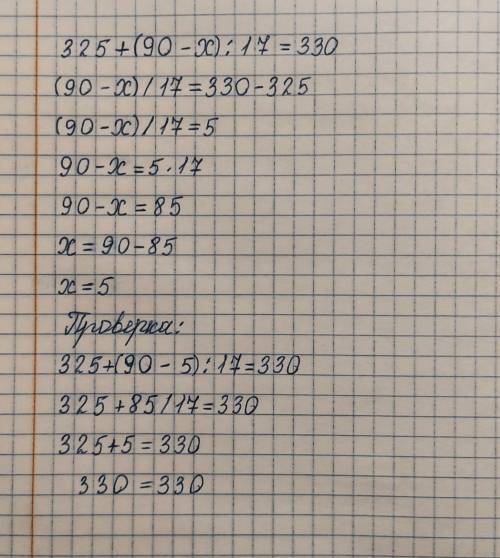 325+(90-х):17=330
(90-х)/17=330-325
(90-х)/17=5
90-х=5·17
90-х=85
х=90-85
х=5
Проверка:
325+(90-5):17=330
325+85/17=330
325+5=330
330=330